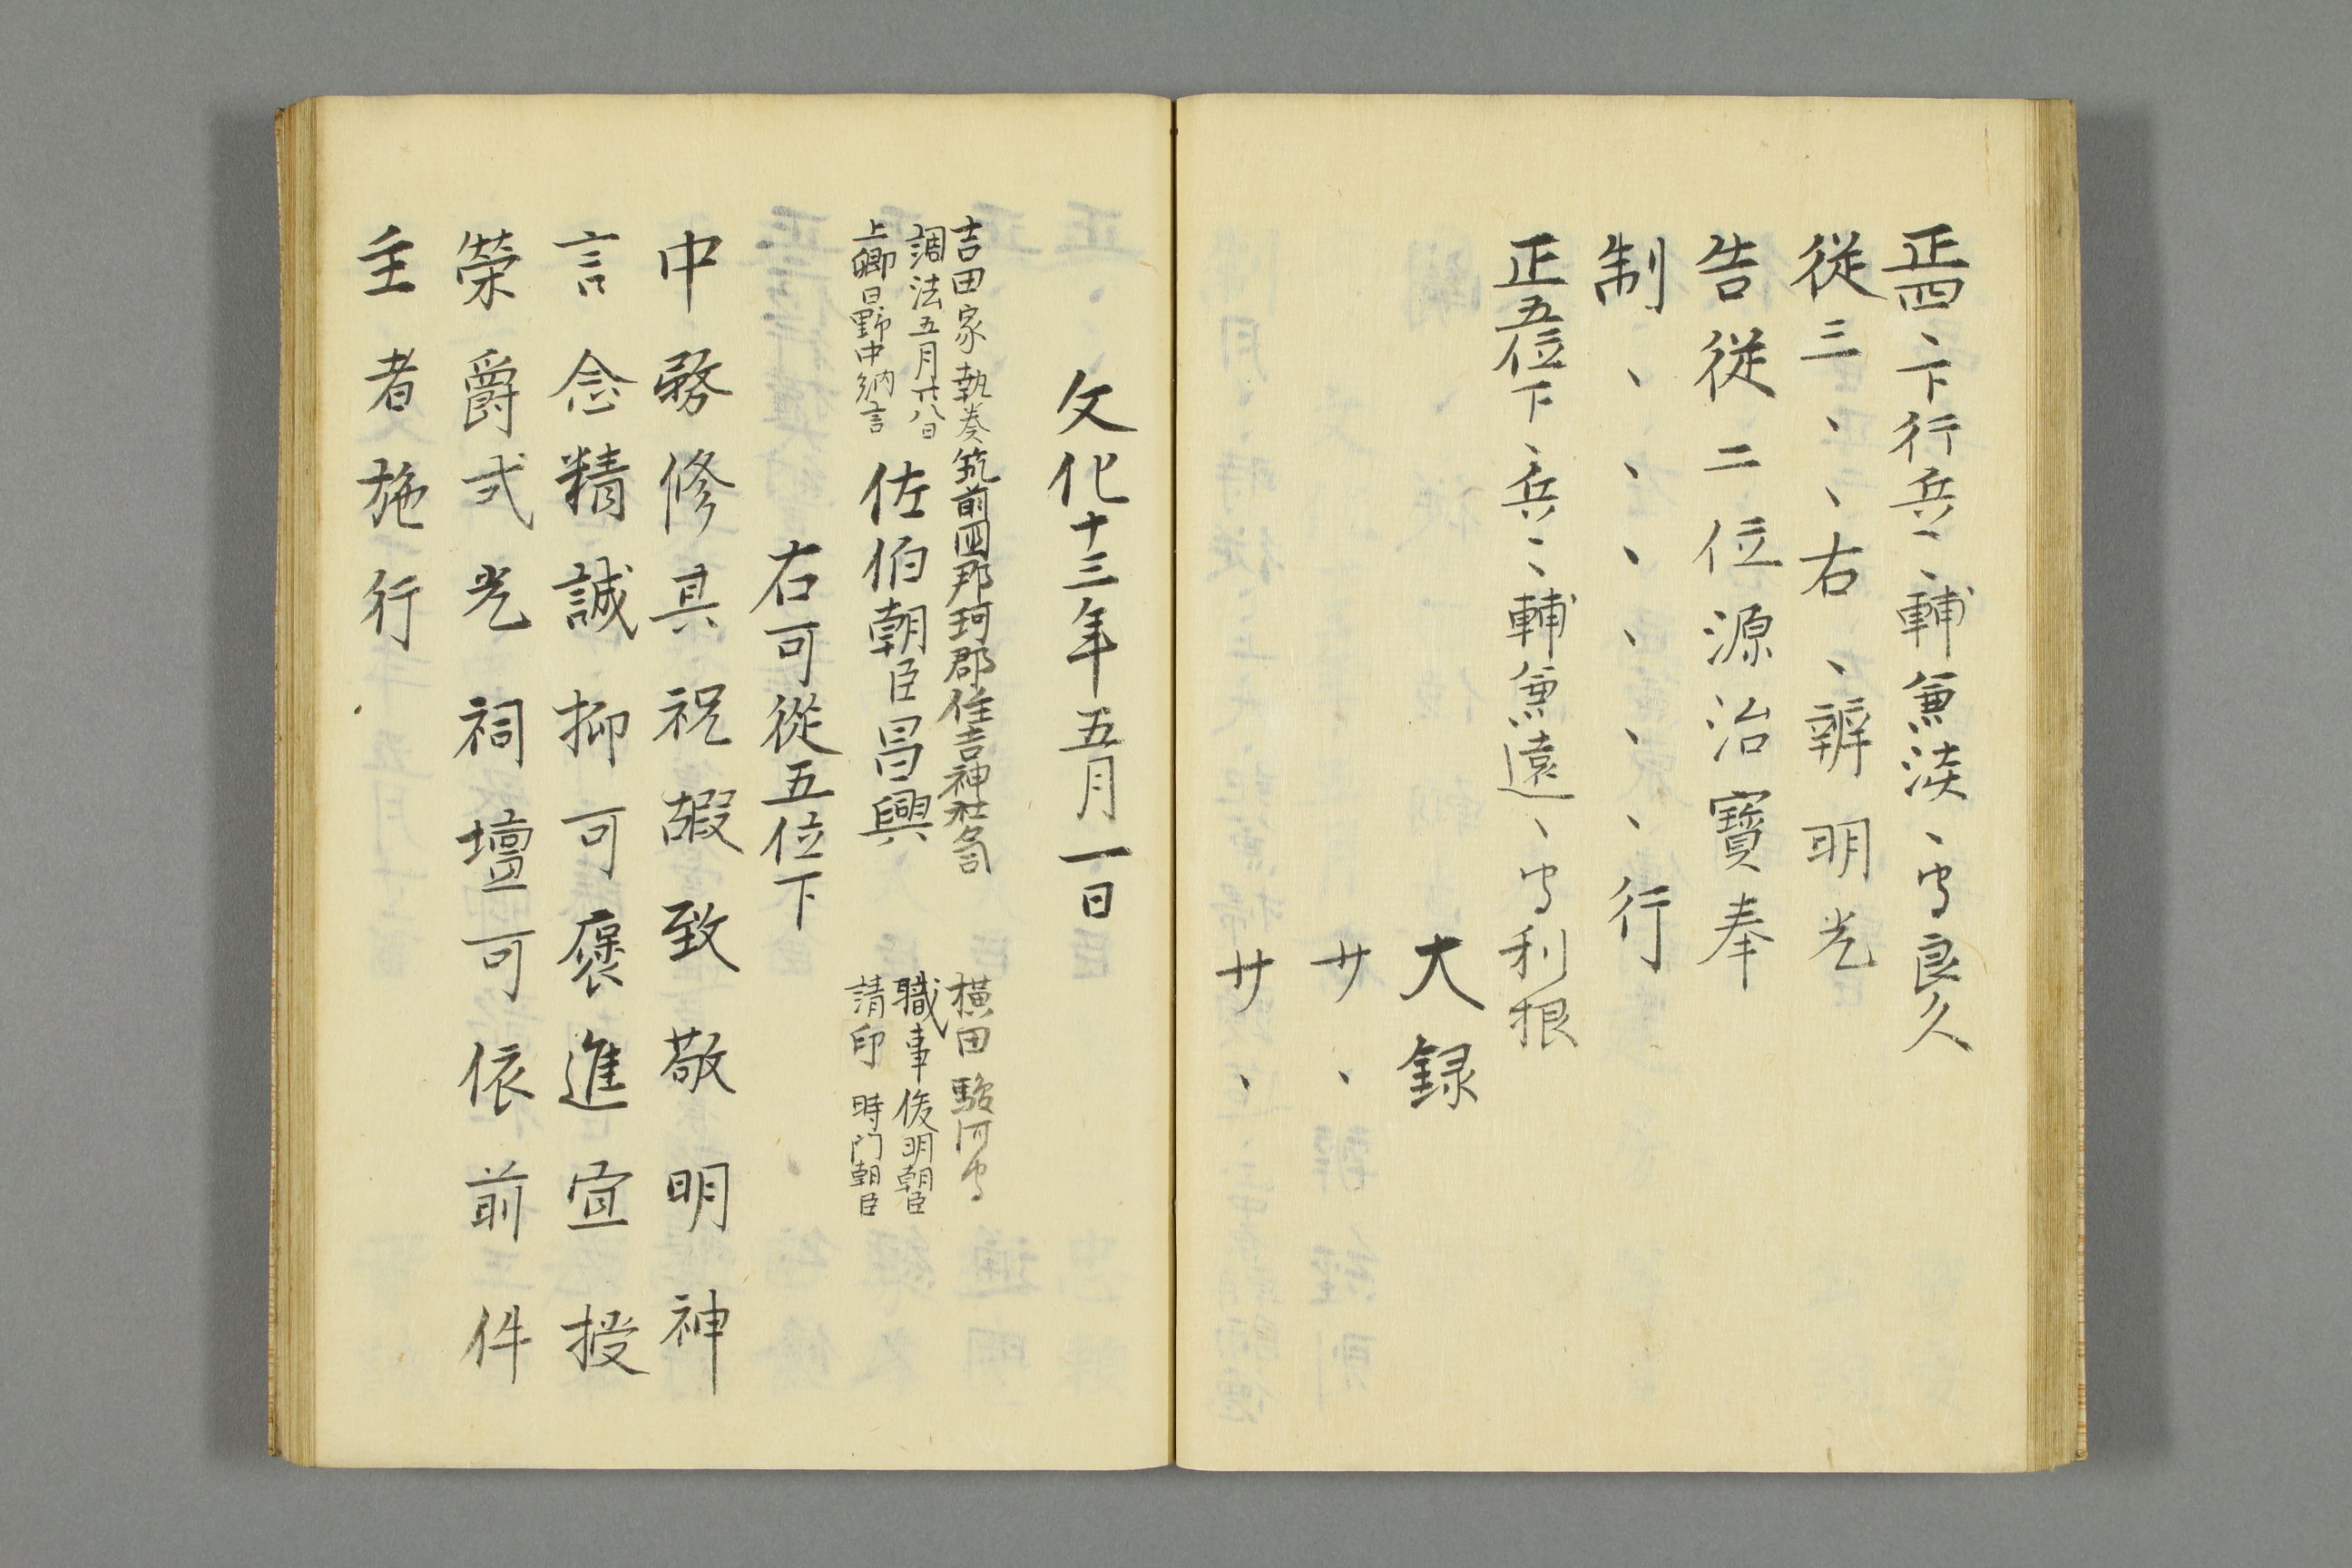 正四、下行兵、、輔兼淡、守良久
從三、、、右、辨明光
告從二位源治寶奉
制、、、、、、行
正五位下、兵、、輔兼遠、守利根
大録
サ、
サ、
文化十三年五月一日
吉田家執奏筑前国那珂郡住吉神社宮司 横田駿河守
調法五月廿八日 職事俊明朝臣
上卿日野中納言 請印 時門朝臣
佐伯朝臣昌興
右可從五位下
中務修其祝嘏致敬明神
言念精誠抑可褒進宜授
榮爵式光祠壇可依前件
主者施行